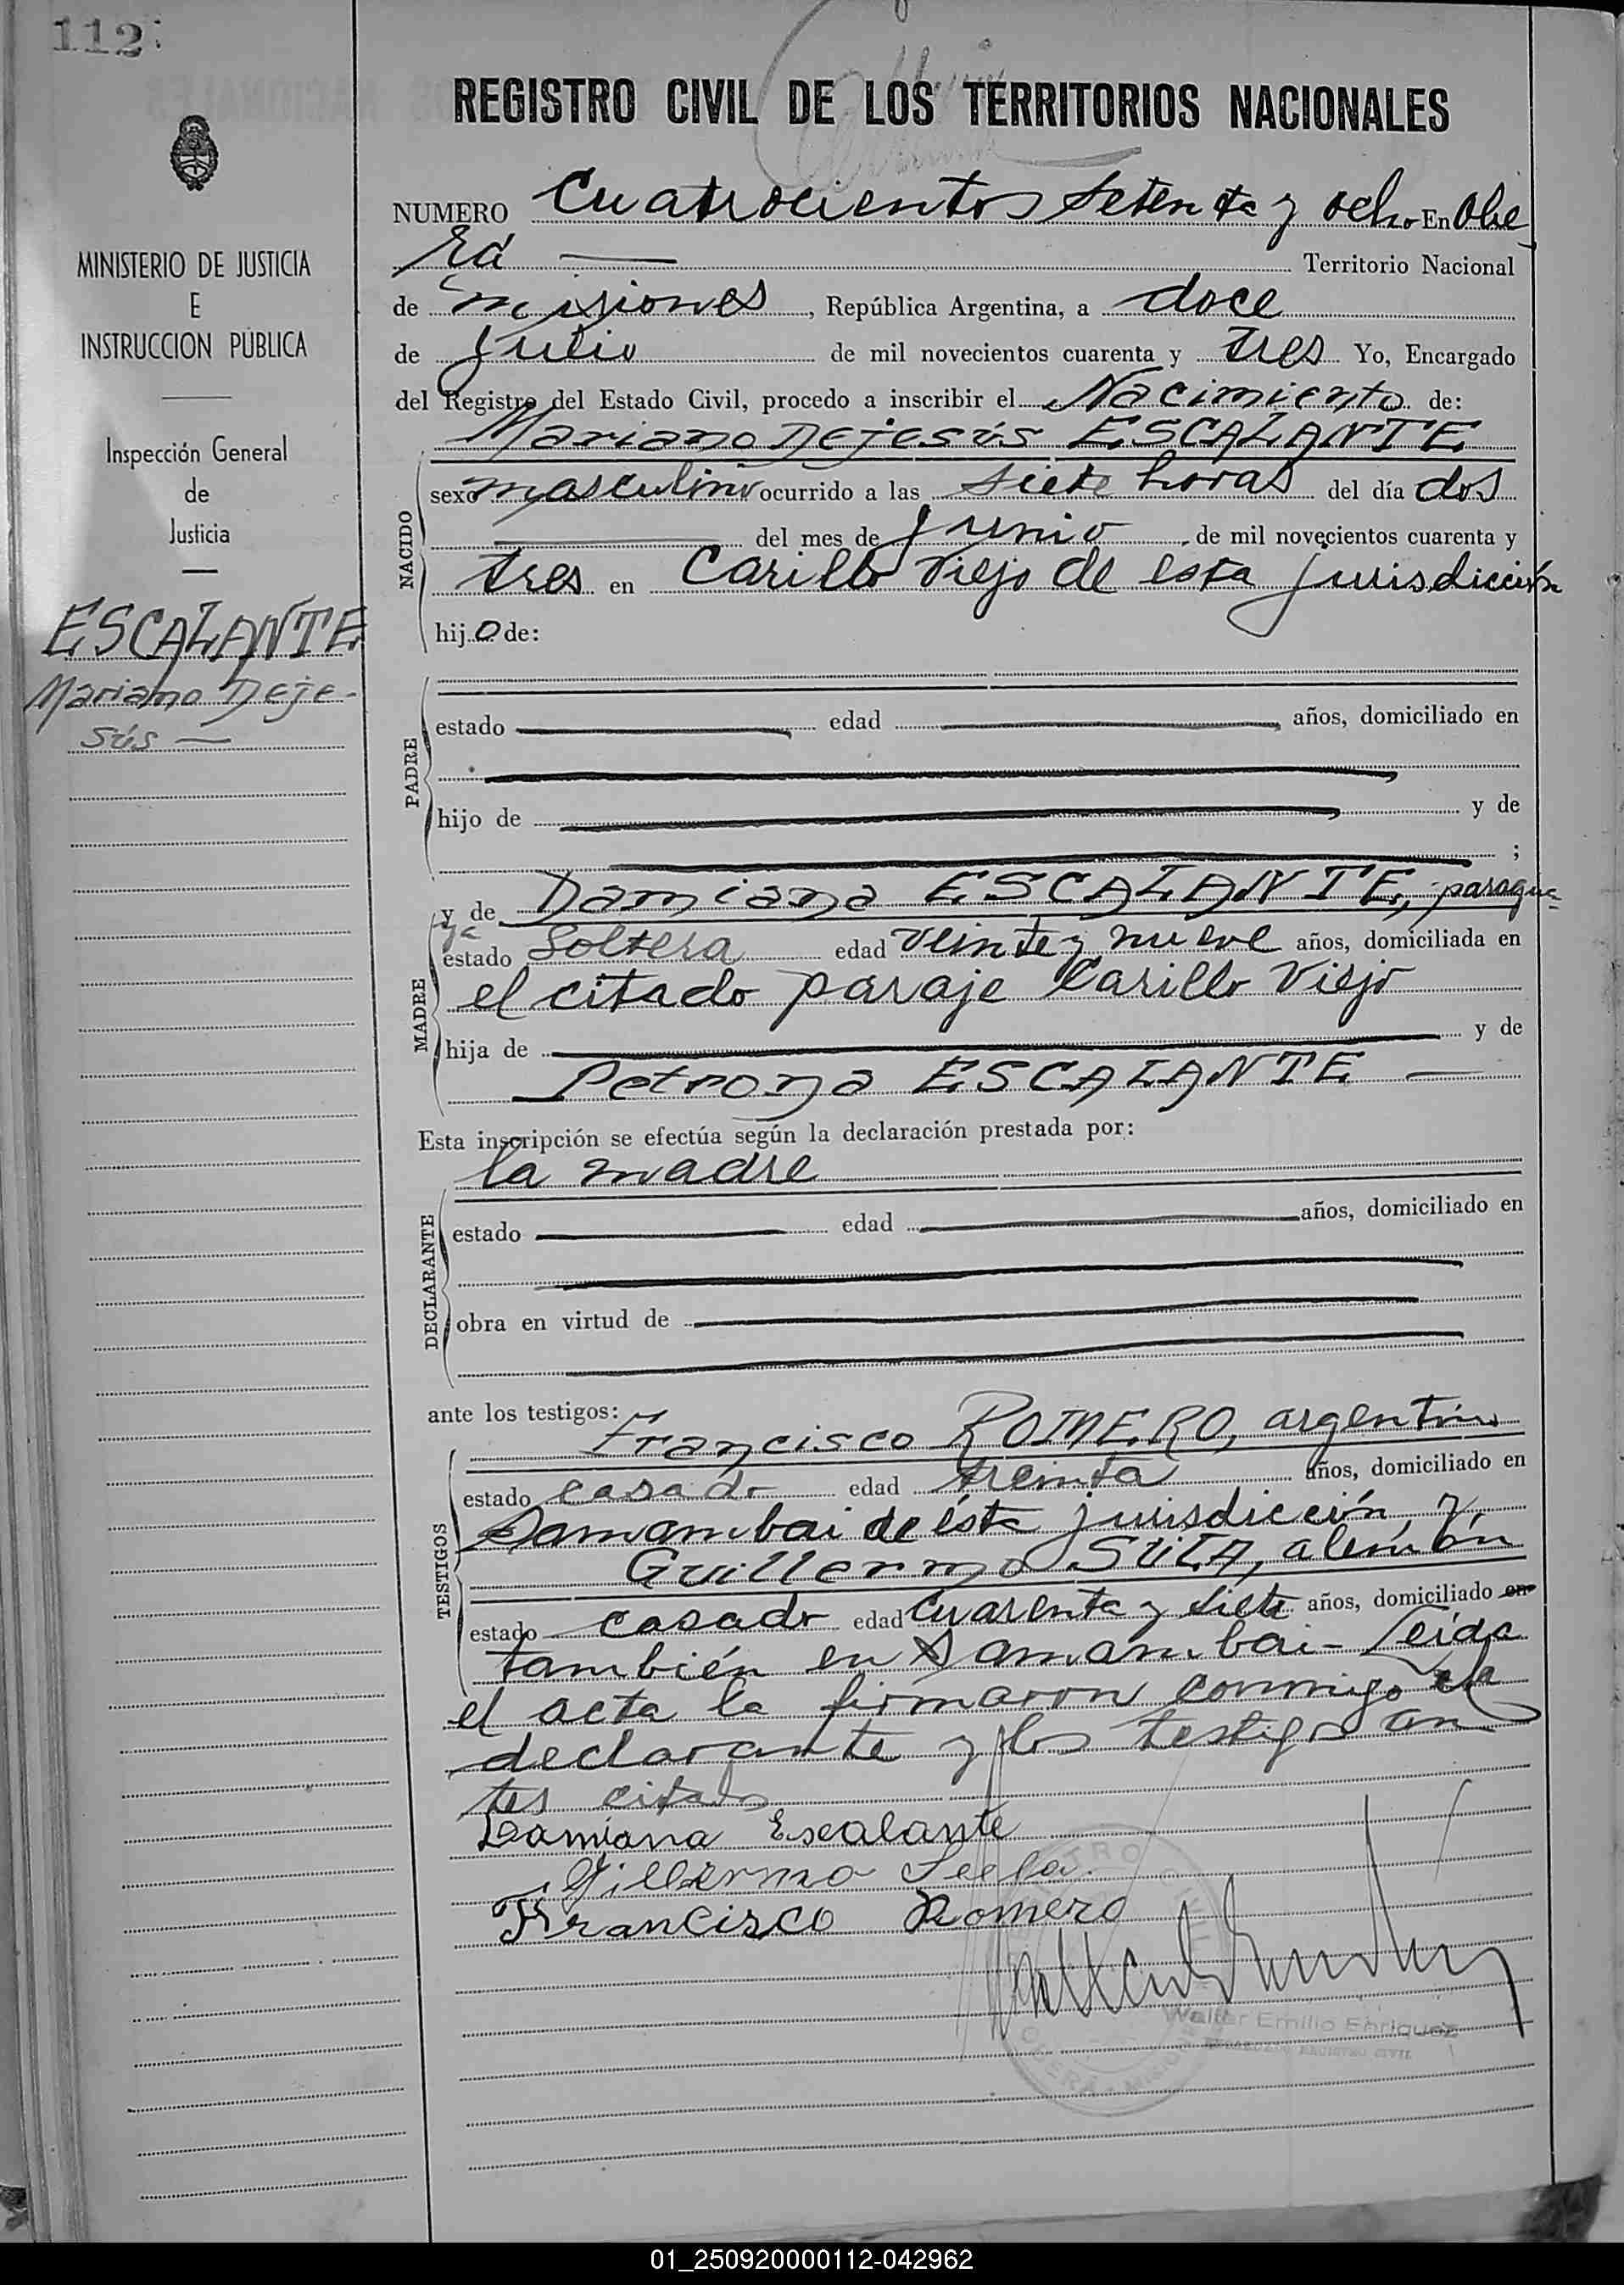 112
REGISTRO CIVIL DE LOS TERRITORIOS NACIONALES
MINISTERIO DE JUSTICIA
E
INSTRUCCION PÚBLICA
Inspección General
de
Justicia
ESCALANTE
Mariano Deje-
sús —
NUMERO Cuatrocientos setenta y ocho En Obe
rá — Territorio Nacional
de misiones, República Argentina, a doce
de Julio de mil novecientos cuarenta y tres Yo, Encargado
del Registro del Estado Civil, procedo a inscribir el Nacimiento de:
Mariano Dejesús ESCALANTE
NACIDO
sexo masculino ocurrido a las siete horas del día dos
del mes de Junio de mil novecientos cuarenta y
tres en Carillo Viejo de esta jurisdicción
hijo de:
PADRE
estado edad años, domiciliado en
hijo de y de
;
MADRE
y de Damiana ESCALANTE, paragua
ya
estado Soltera edad veinte y nueve años, domiciliada en
el citado paraje Carillo Viejo
hija de y de
Petrona ESCALANTE —
Esta inscripción se efectúa según la declaración prestada por:
la madre
DECLARANTE
estado edad años, domiciliado en
obra en virtud de
ante los testigos:
TESTIGOS
Francisco ROMERO, argentino
estado casado edad treinta años, domiciliado en
Samambai de ésta jurisdicción, y,
Guillermo alemán
estado casado edad cuarenta y siete años, domiciliado en
también en Samambai - Leida
el acta la firmaron conmigo la
declarante y los testigos an
tes citados
Damiana Escalante
Gillermo
Francisco Romero
Walter Emilio Enriquez
ENCARGADO REGISTRO CIVIL
01_250920000112-042962